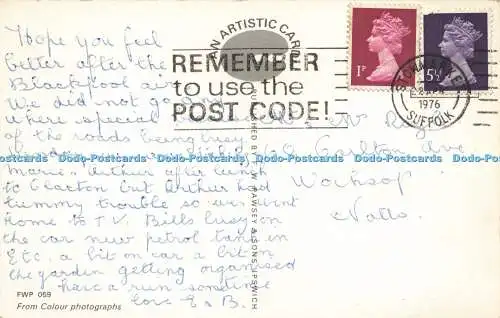 Hope you feel
better after the
Blackpool air
We did not go
where special
of the roads being busy
Marie & Arthur after lunch
to Clacton but Arthur had
tummy trouble so we went
Home to T.V. Bills busy on
the car new petrol tank in
Etc. a bit on car a bit in
the garden getting organised
have a run sometime
love E & B.
FWP 059
From Colour photographs
AN ARTISTIC CARD
REMEMBER
to use the
POST CODE!
SONS IPSWICH
1P
5½P
STOWMARKET
1976
SUFFOLK
Carlton Ave
Worksop
Notts.
Dodo-Postcards Dodo-Postcards Dodo-Postcards Dodo-Postcards Dodo-Postcards Dodo-Postcards